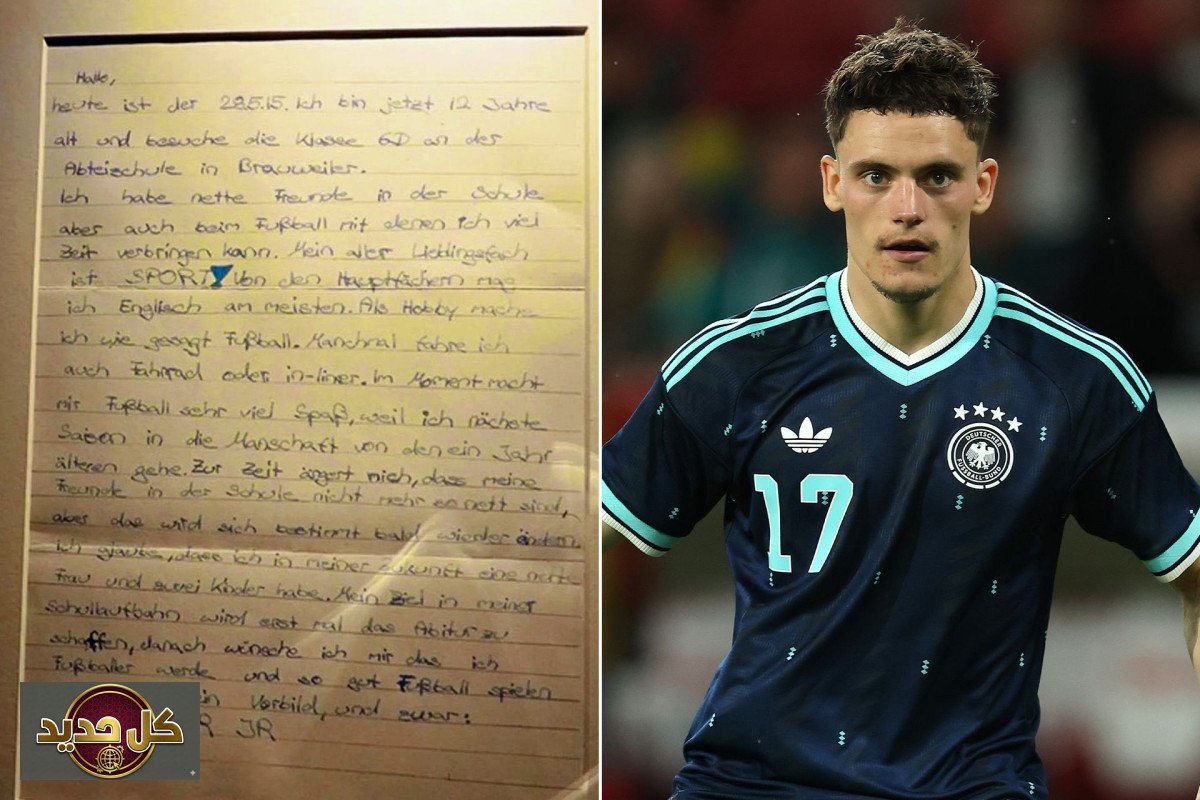 Hallo,
heute ist der 28.5.15. Ich bin jetzt 12 Jahre
alt und besuche die Klasse 6D an der
Abteischule in Brauweiler.
Ich habe nette Freunde in der Schule
aber auch beim Fußball mit denen ich viel
Zeit verbringen kann. Mein aller Lieblingsfach
ist SPORT Von den Hauptfächern mag
ich Englisch am meisten. Als Hobby mache
ich wie gesagt Fußball. Manchmal fahre ich
auch Fahrrad oder in-liner. Im Moment macht
mir Fußball sehr viel Spaß, weil ich nächste
Saison in die Manschaft von den ein Jahr
älteren gehe. Zur Zeit ärgert mich, dass meine
Freunde in der Schule nicht mehr so nett sind,
aber das wird sich bestimmt bald wieder ändern.
ich glaube, dass ich in meiner zukunft eine nette
Frau und zwei Kinder habe. Mein Ziel in meiner
schullaufbahn wird erst mal das Abitur zu
schaffen, danach wünsche ich mir das ich
Fußballer werde und so gut Fußball spielen
Vorbild, und zwar:
JR
كل جديد
17
DEUTSCHER
FUSSBALL-BUND